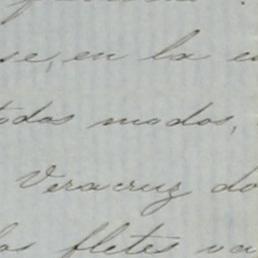 se, en la
todos modos,
Veracruz do
los fletes va